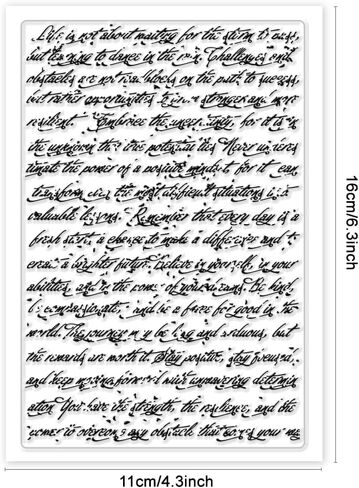 Life is not about waiting for the storm to pass,
but learning to dance in the rain. Challenges and
obstacles are not roadblocks on the path to success,
but rather opportunities to grow stronger and more
resilient. Embrace the uncertainty, for it is in
the unknown that true potential lies. Never underes
timate the power of a positive mindset, for it can
transform even the most difficult situations into
valuable lessons. Remember that every day is a
fresh start, a chance to make a difference and to
create a brighter future. Believe in yourself, in your
abilities, and in the power of your dreams. Be kind,
be compassionate, and be a force for good in the
world. The journey may be long and arduous, but
the rewards are worth it. Stay positive, stay focused,
and keep moving forward with unwavering determin
ation. You have the strength, the resilience, and the
power to overcome any obstacle that comes your way
16cm/6.3inch
11cm/4.3inch